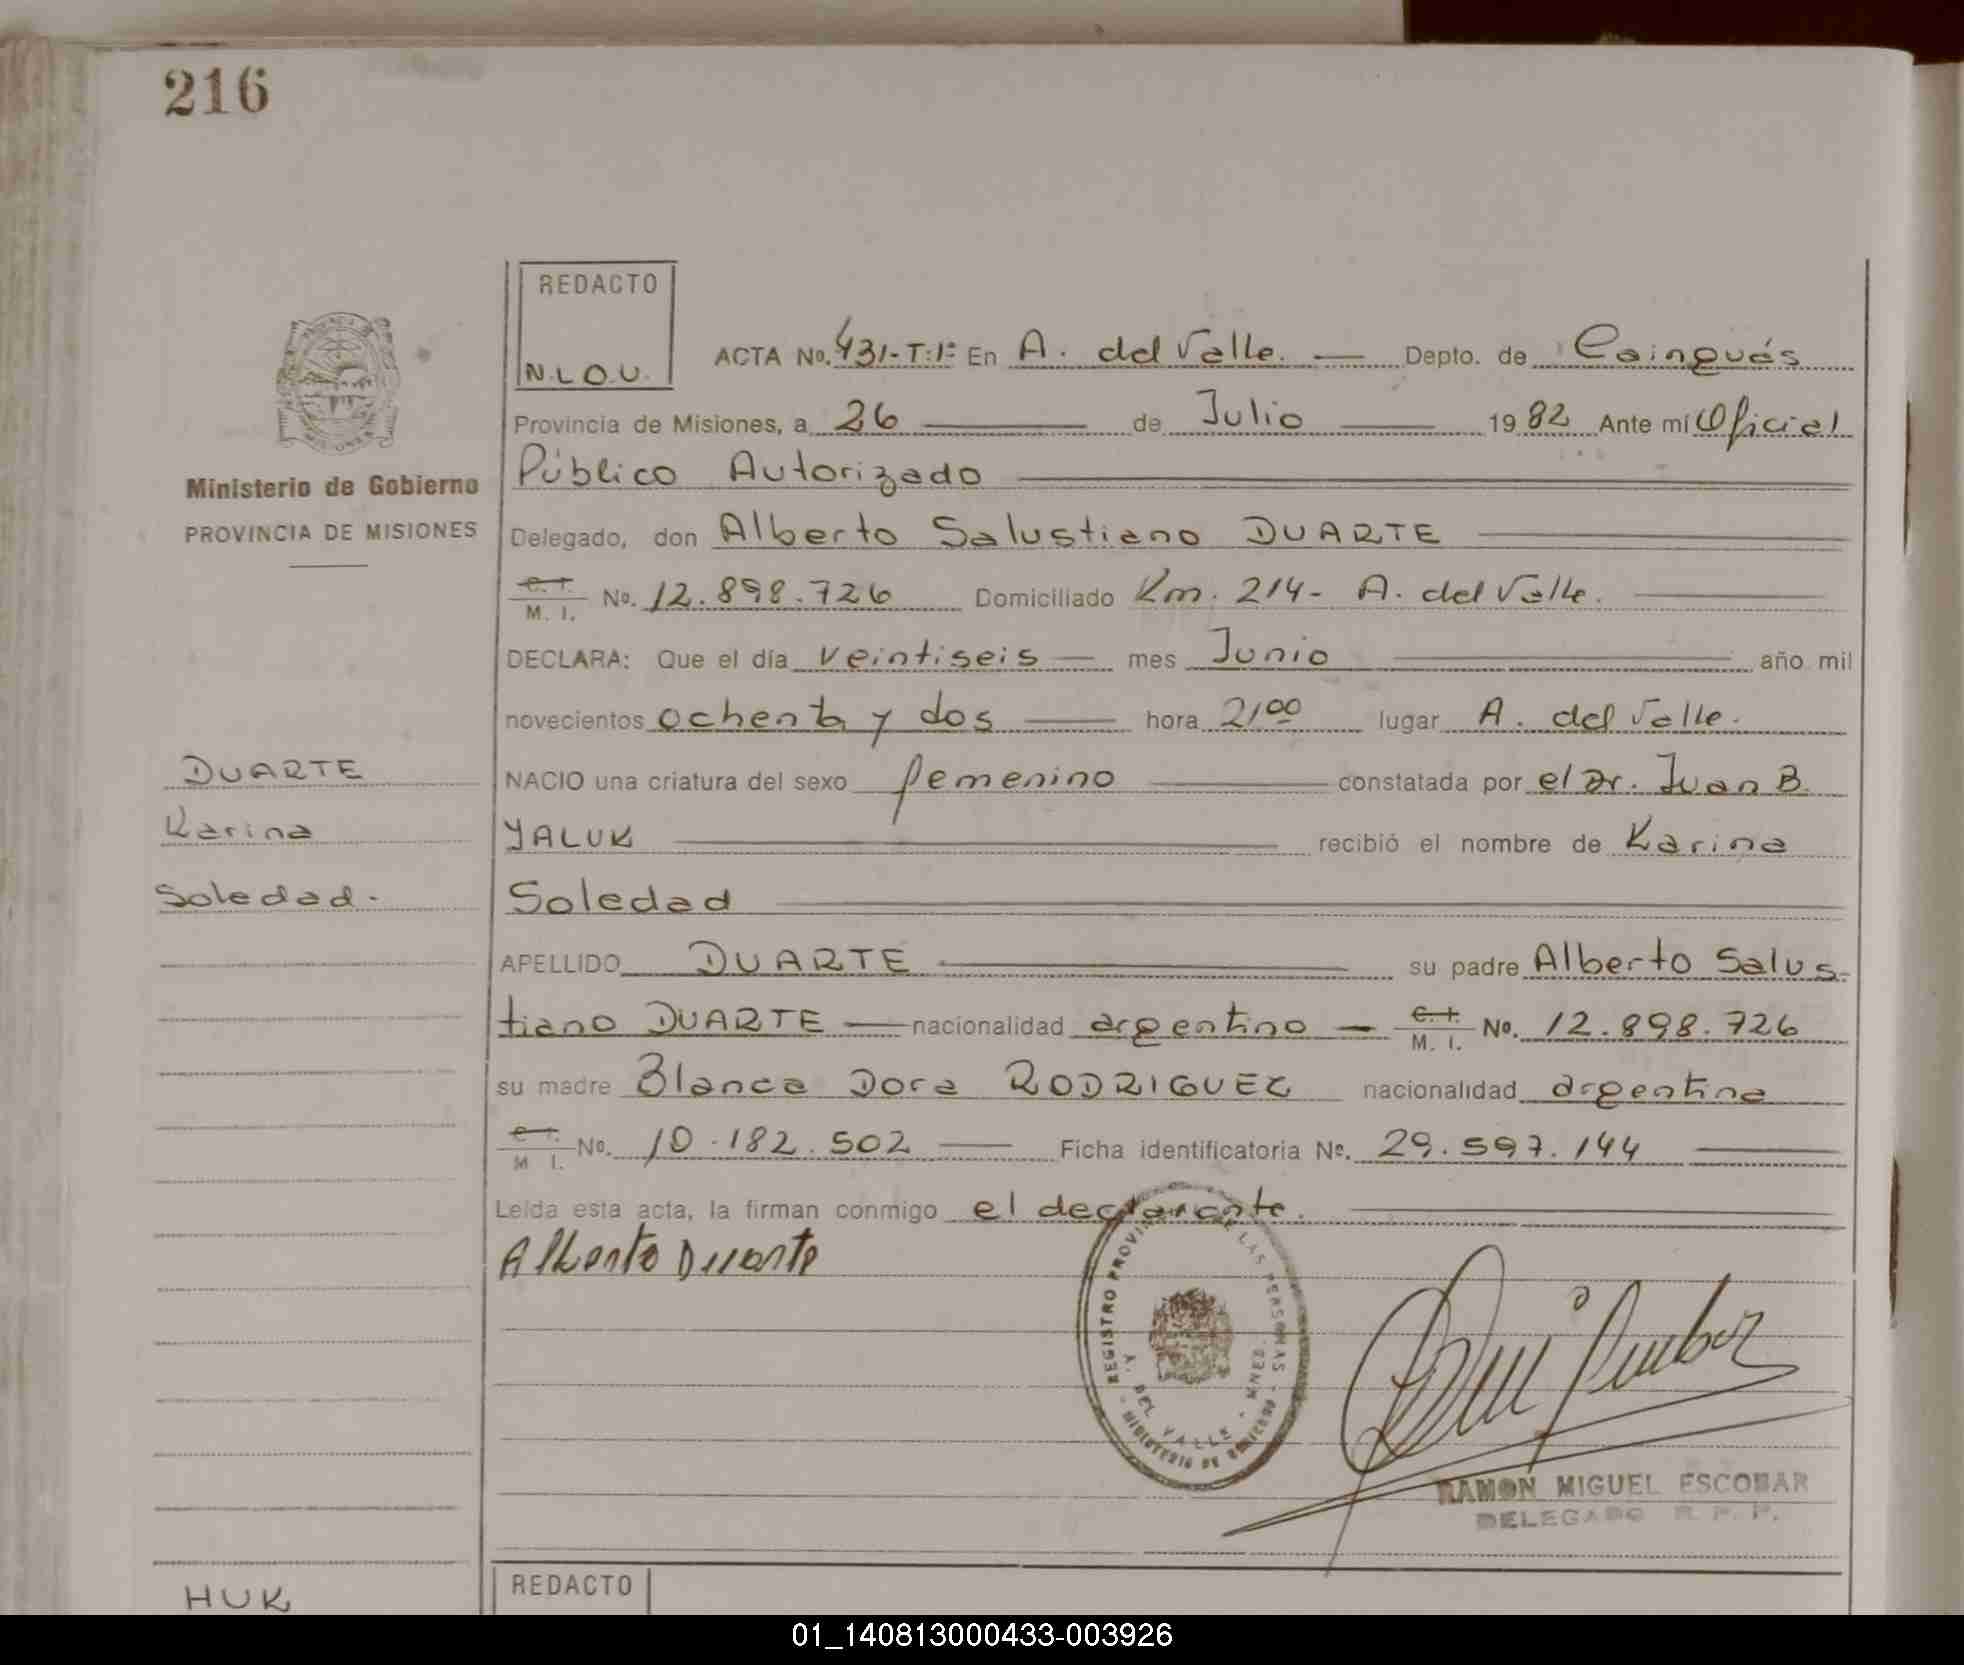 216
REDACTO
N.L.O.U.
ACTA No. 431-T:1º En A. del Valle. Depto. de Cainguás
Provincia de Misiones, a 26 de Julio 1982 Ante mí Oficial
Público Autorizado
Ministerio de Gobierno
PROVINCIA DE MISIONES
Delegado, don Alberto Salustiano DUARTE
C. I.
M. I. No. 12.898.726 Domiciliado Km. 214- A. del Valle.
DECLARA: Que el día veintiseis mes Junio año mil
novecientos ochenta y dos hora 2100 lugar A. del Valle.
DUARTE
Karina
Soledad.
NACIO una criatura del sexo femenino constatada por el Dr. Juan B.
YALUK recibió el nombre de Karina
Soledad
APELLIDO DUARTE su padre Alberto Salus-
tiano DUARTE nacionalidad argentino C. I. M. I. No. 12.898.726
su madre Blanca Dora RODRIGUEZ nacionalidad argentina
C. I. M I. No. 10.182.502 Ficha identificatoria No. 29.597.144
Leída esta acta, la firman conmigo el declarante.
Alberto Duarte
REGISTRO PROVINCIAL DE LAS PERSONAS
A. DEL VALLE - MNES.
MINISTERIO DE GOBIERNO
RAMON MIGUEL ESCOBAR
DELEGADO R. P. P.
HUK
REDACTO
01_140813000433-003926